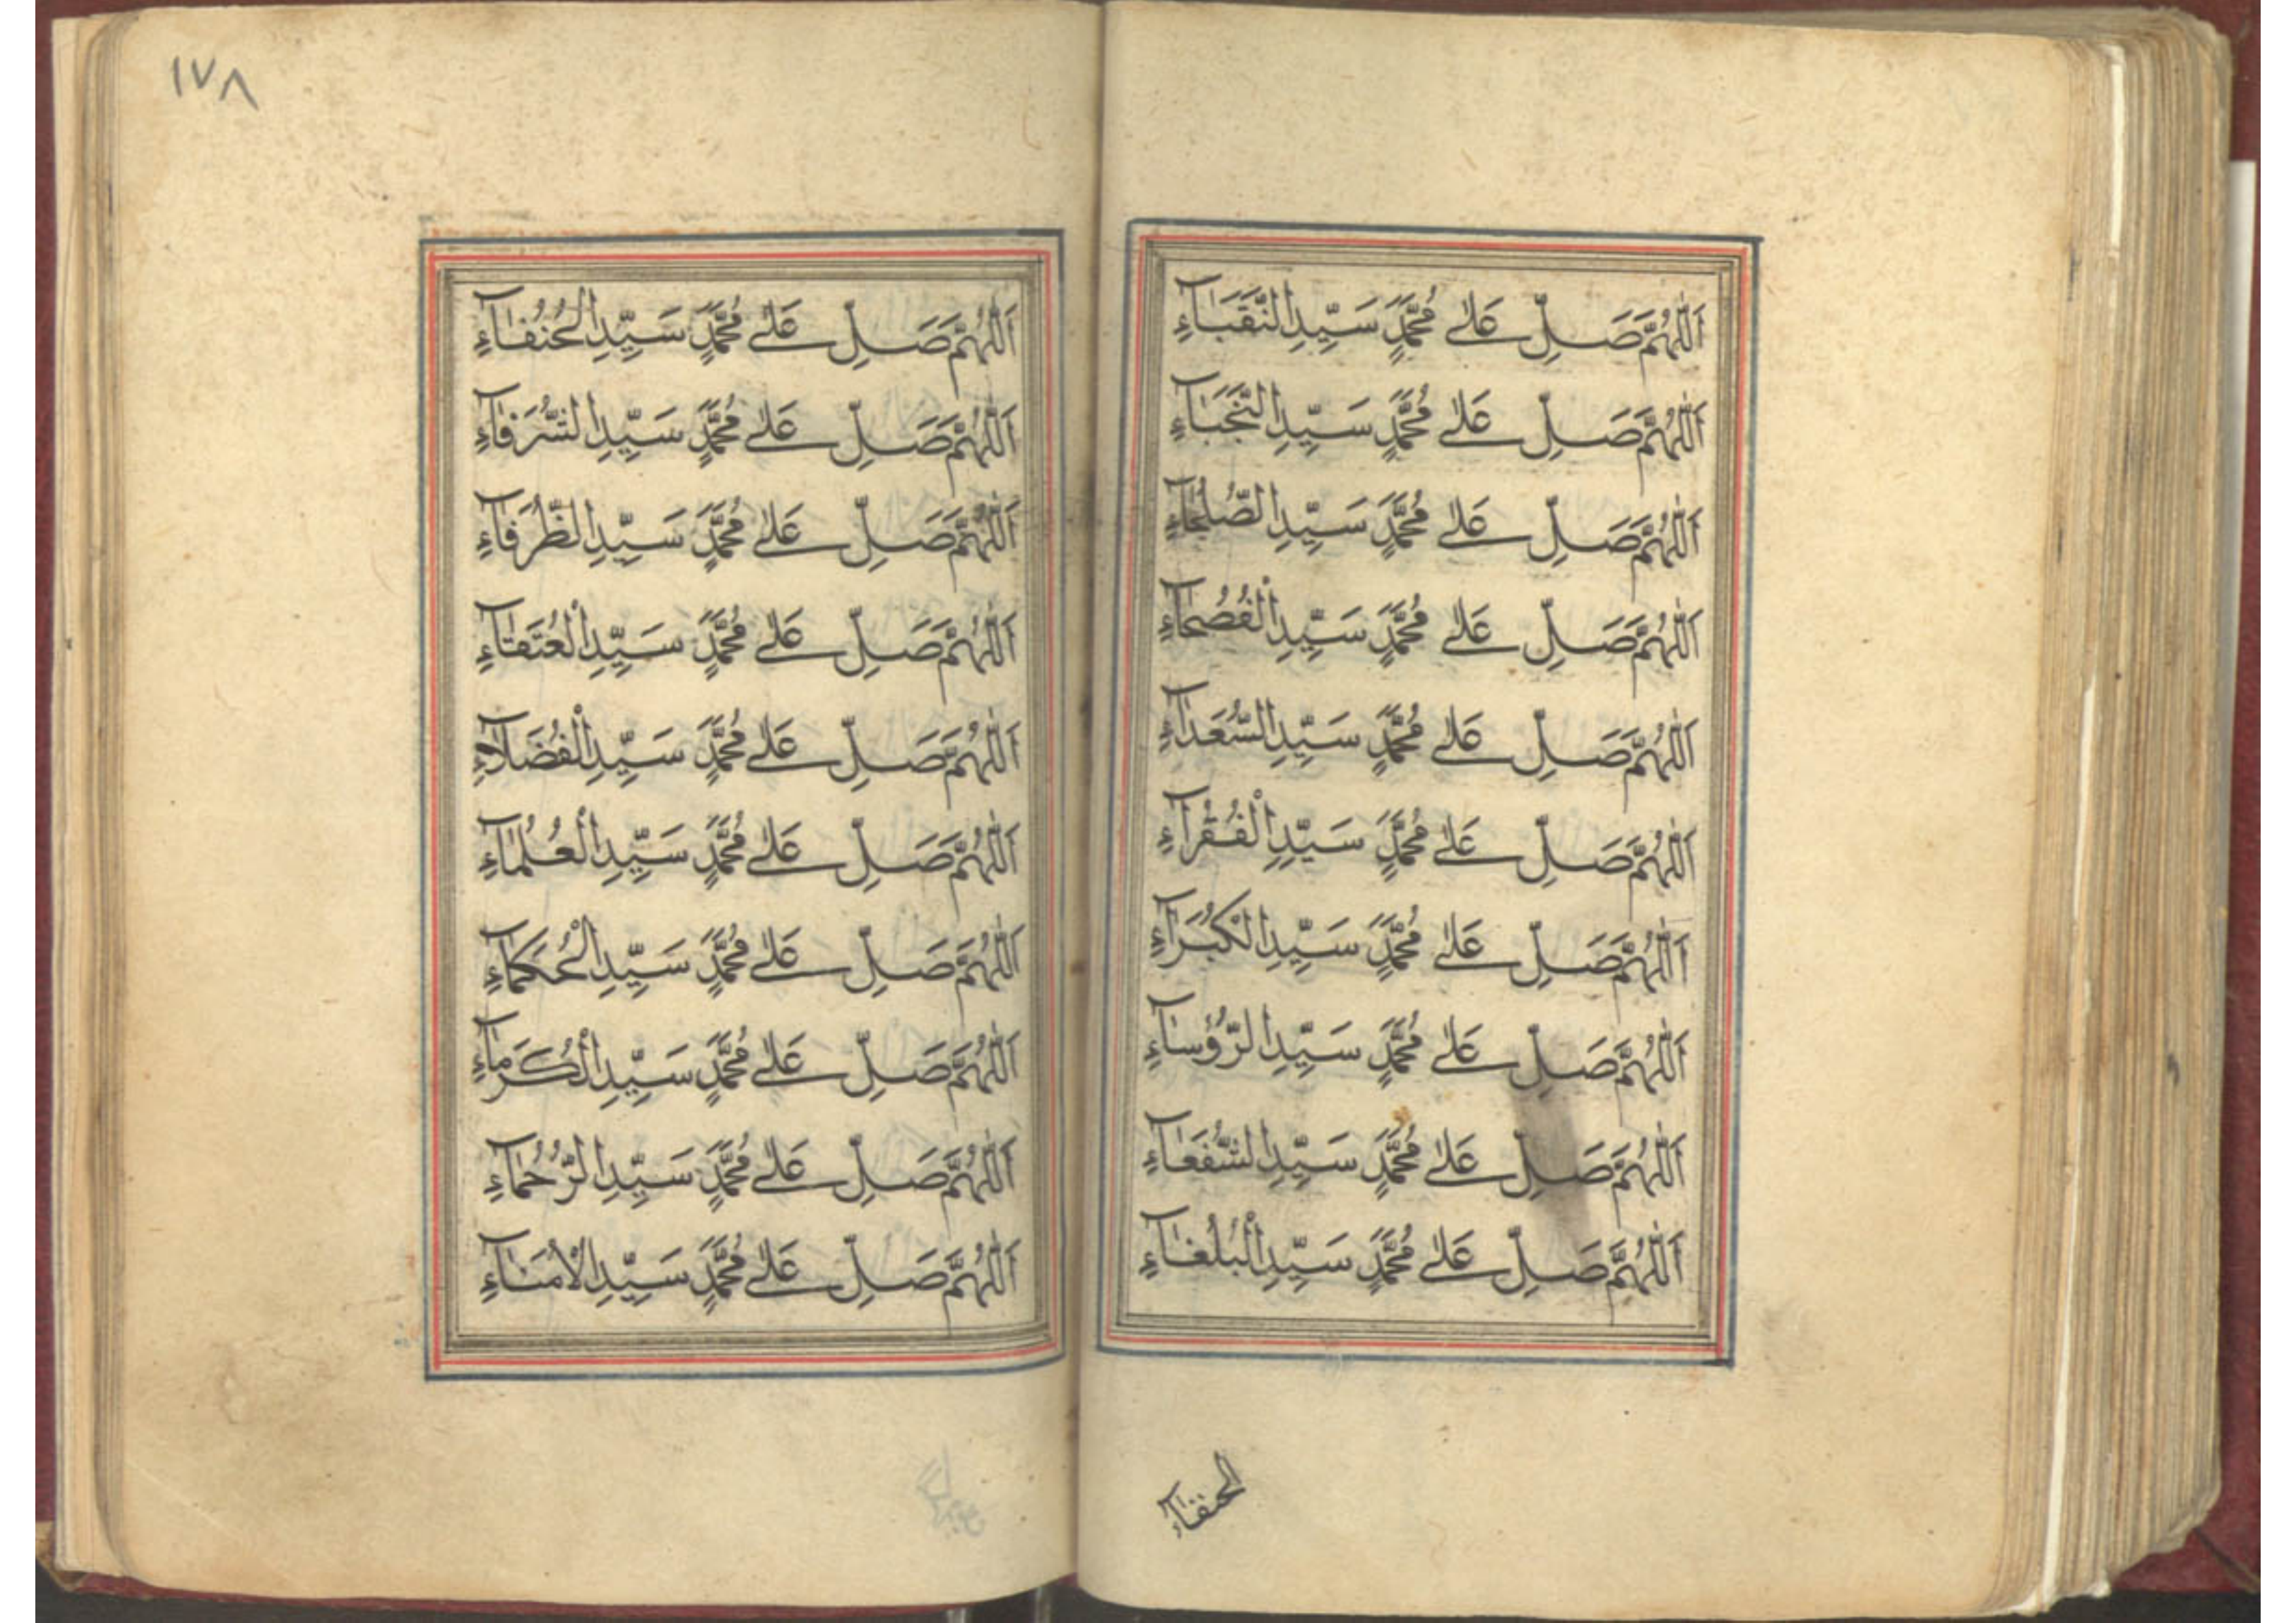 اَللّٰهُمَّ صَلِّ عَلٰى مُحَمَّدٍ سَيِّدِ النُّقَبَاءِ
اَللّٰهُمَّ صَلِّ عَلٰى مُحَمَّدٍ سَيِّدِ النُّجَبَاءِ
اَللّٰهُمَّ صَلِّ عَلٰى مُحَمَّدٍ سَيِّدِ الصُّلَحَاءِ
اَللّٰهُمَّ صَلِّ عَلٰى مُحَمَّدٍ سَيِّدِ الْفُصَحَاءِ
اَللّٰهُمَّ صَلِّ عَلٰى مُحَمَّدٍ سَيِّدِ السُّعَدَاءِ
اَللّٰهُمَّ صَلِّ عَلٰى مُحَمَّدٍ سَيِّدِ الْفُقَرَاءِ
اَللّٰهُمَّ صَلِّ عَلٰى مُحَمَّدٍ سَيِّدِ الْكُبَرَاءِ
اَللّٰهُمَّ صَلِّ عَلٰى مُحَمَّدٍ سَيِّدِ الرُّؤَسَاءِ
اَللّٰهُمَّ صَلِّ عَلٰى مُحَمَّدٍ سَيِّدِ الشُّفَعَاءِ
اَللّٰهُمَّ صَلِّ عَلٰى مُحَمَّدٍ سَيِّدِ الْبُلَغَاءِ
الحنفآء
١٧٨
اَللّٰهُمَّ صَلِّ عَلٰى مُحَمَّدٍ سَيِّدِ الْحُنَفَاءِ
اَللّٰهُمَّ صَلِّ عَلٰى مُحَمَّدٍ سَيِّدِ الشُّرَفَاءِ
اَللّٰهُمَّ صَلِّ عَلٰى مُحَمَّدٍ سَيِّدِ الظُّرَفَاءِ
اَللّٰهُمَّ صَلِّ عَلٰى مُحَمَّدٍ سَيِّدِ الْعُتَقَاءِ
اَللّٰهُمَّ صَلِّ عَلٰى مُحَمَّدٍ سَيِّدِ الْفُضَلَاءِ
اَللّٰهُمَّ صَلِّ عَلٰى مُحَمَّدٍ سَيِّدِ الْعُلَمَاءِ
اَللّٰهُمَّ صَلِّ عَلٰى مُحَمَّدٍ سَيِّدِ الْحُكَمَاءِ
اَللّٰهُمَّ صَلِّ عَلٰى مُحَمَّدٍ سَيِّدِ الْكُرَمَاءِ
اَللّٰهُمَّ صَلِّ عَلٰى مُحَمَّدٍ سَيِّدِ الرُّحَمَاءِ
اَللّٰهُمَّ صَلِّ عَلٰى مُحَمَّدٍ سَيِّدِ الْاُمَنَاءِ